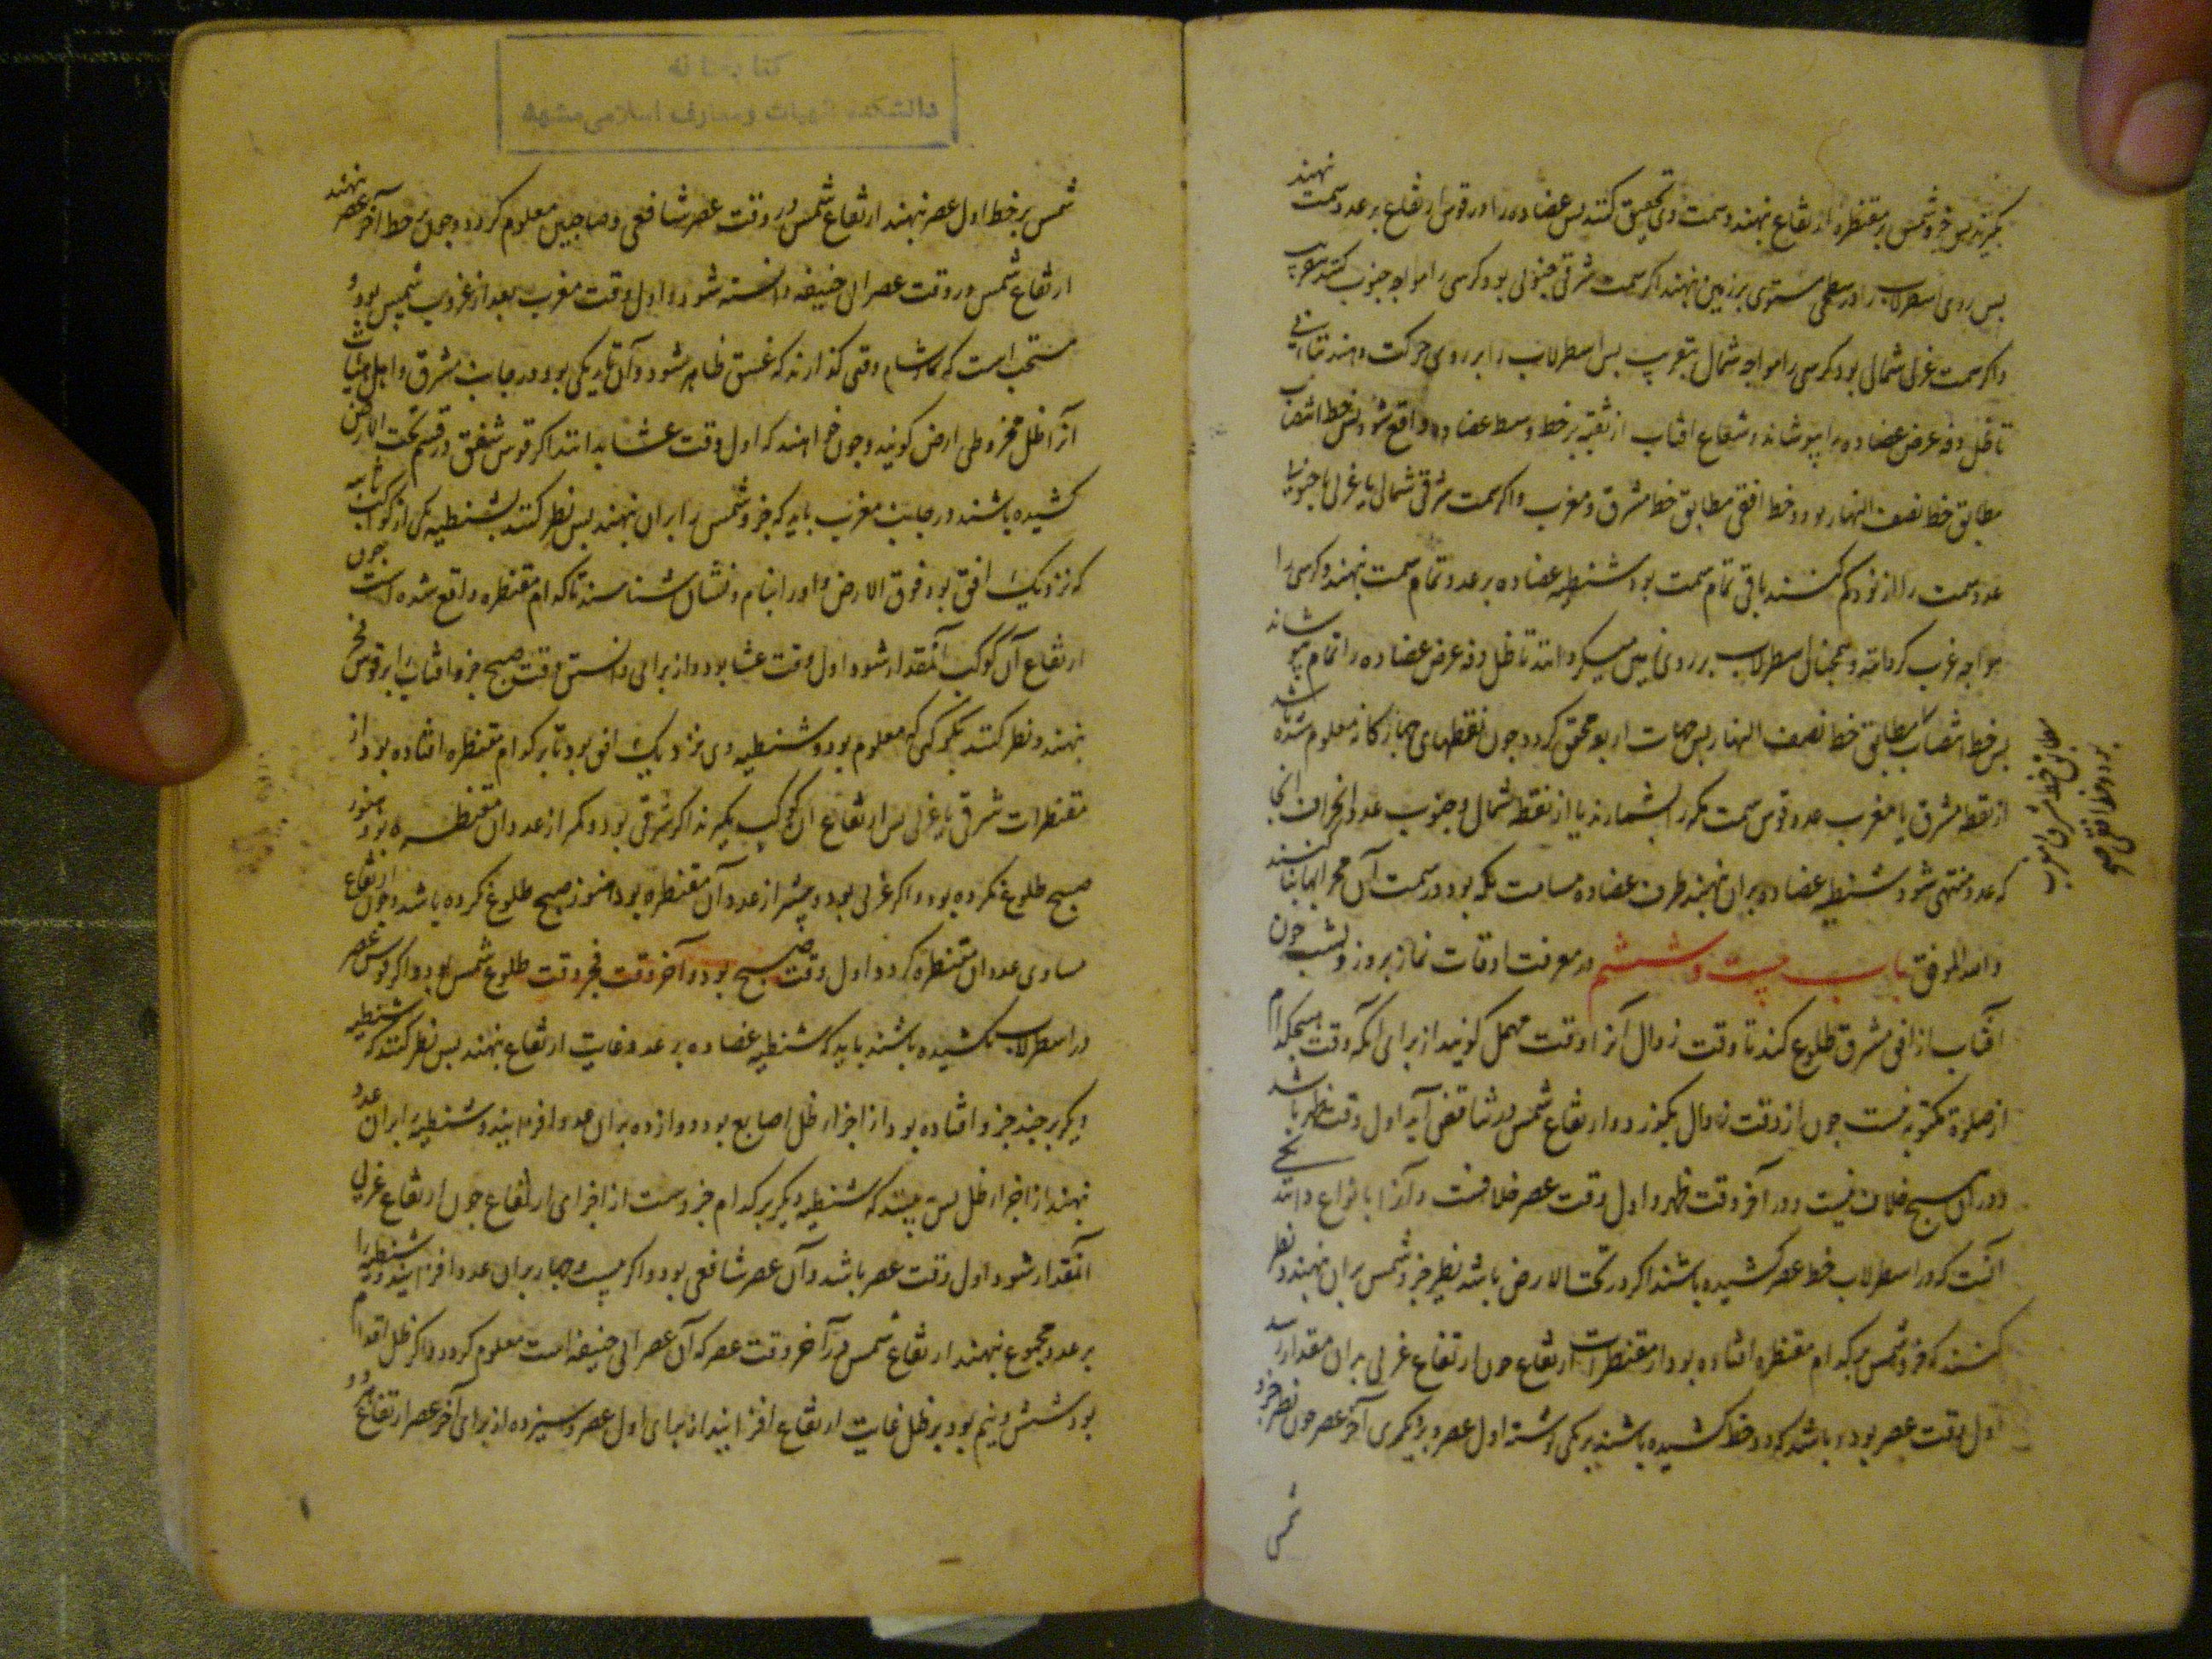 بگیرند پس جزو شمس بر مقنطره ارتفاع نهند و سمت وی تحقیق کنند پس عضاده را در قوس ارتفاع بر عدد سمت نهند
پس روی اسطرلاب را در سطحی مستوی بر زمین نهند اگر سمت شرقی جنوبی بود کرسی را مواجه جنوب کنند بتقریب
و اگر سمت غربی شمالی بود کرسی را مواجه شمال بتقریب پس اسطرلاب را بر روی حرکت دهند تا
تا ظل دفه عرض عضاده را بپوشاند و شعاع افتاب از ثقبه بر خط وسط عضاده واقع شود پس خط انتصاب
مطابق خط نصف النهار بود و خط افقی مطابق خط مشرق و مغرب و اگر سمت شرقی شمالی یا غربی جنوبی
عدد سمت را از نود کم کنند باقی تمام سمت بود شنطیه عضاده بر عدد تمام سمت نهند و کرسی را
مواجه غرب کردانند و همچنان اسطرلاب بر روی زمین میکردانند تا ظل دفه عرض عضاده را تمام بپوشاند
پس خط انتصاب مطابق خط نصف النهار پس جهات اربعه محقق کردد و چون نقطهای چهارکانه معلوم شده باشد
از نقطه مشرق یا مغرب عدد قوس سمت مکه بشمارند یا از نقطه شمال و جنوب عدد انحراف انجا
که عدد منتهی شود شنطیه عضاده بر ان نهند طرف عضاده مسامت مکه بود در سمت آن محرابها بنا کنند
والله الموفق باب بیست و ششم در معرفت اوقات نماز بروز و بشب چون
آفتاب از افق مشرق طلوع کند تا وقت زوال آنرا وقت مهمل کویند از برای آنکه وقت هیچکدام
از صلوة مکتوبه نیست چون از وقت زوال بکذرد و ارتفاع شمس در تناقص آید اول وقت ظهر باشد
و در آن هیچ خلاف نیست و در آخر وقت ظهر و اول وقت عصر خلافست و آنرا بانواع دانند یکی
آنست که در اسطرلاب خط عصر کشیده باشند اگر در تحت الارض باشد نظیر جزو شمس بر ان نهند و نظر
کنند که جزو شمس بر کدام مقنطره افتاده بود از مقنطرات ارتفاع چون ارتفاع غربی بر ان مقدار رسد
اول وقت عصر بود و باشد که دو خط کشیده باشند بر یکی نوشته اول عصر و بر دیکری آخر عصر چون نظیر جزو
شمس
کتابخانه
دانشکده الهیات و معارف اسلامی مشهد
شمس بر خط اول عصر نهند ارتفاع شمس در وقت عصر شافعی و صاحبین معلوم کردد و چون بر خط آخر عصر نهند
ارتفاع شمس در وقت عصر ابی حنیفه دانسته شود و اول وقت مغرب بعد از غروب شمس بود و
مستحب است که نماز شام وقتی کذارند که غسق ظاهر شود و آن تاریکی بود در جانب مشرق و اهل هیات
آنرا ظل مخروطی ارض کویند و چون خواهند که اول وقت عشا بدانند اکر قوس شفق در قسم تحت الارض
کشیده باشند در جانب مغرب باید که جزو شمس را بر ان نهند پس نظر کنند بشنطیه یکی از کواکب ثابته
که نزدیک افق بود فوق الارض و او را بنام و نشان شناسند تا کدام مقنطره واقع شده است چون
ارتفاع آن کوکب آنمقدار شود اول وقت عشا بود و از برای دانستن وقت صبح جزو افتاب را بر قوس فجر
نهند و نظر کنند بکوکبی که معلوم بود و شنطیه وی نزدیک افق بود تا بر کدام مقنطره افتاده بود از
مقنطرات شرقی یا غربی پس ارتفاع ان کوکب بکیرند اکر شرقی بود و کم از عدد ان مقنطره بود هنوز
صبح طلوع نکرده بود و اکر غربی بود و بیشتر از عدد آن مقنطره بود هنوز صبح طلوع نکرده باشد و چون ارتفاع
مساوی عدد ان مقنطره کردد اول وقت صبح بود و آخر وقت فجر وقت طلوع شمس بود و اکر قوس عصر
در اسطرلاب نکشیده باشند باید که شنطیه عضاده بر عدد غایت ارتفاع نهند پس نظر کنند که شنطیه
دیکر بر چند جزو افتاده بود از اجزاء ظل اصابع بود دوازده بر ان عدد افزایند و شنطیه را بر ان عدد
نهند از اجزاء ظل پس ببینند که شنطیه دیکر بر کدام جزوست از اجزای ارتفاع چون ارتفاع غربی
آنمقدار شود اول وقت عصر باشد و آن عصر شافعی بود و اکر بیست و چهار بر ان عدد افزایند و شنطیه را
بر عدد مجموع نهند ارتفاع شمس در آخر وقت عصر که آن عصر ابی حنیفه است معلوم کردد و اکر ظل اقدام
بود شش و نیم بود بر ظل غایت ارتفاع افزایند از برای اول عصر و سیزده از برای آخر عصر ارتفاع